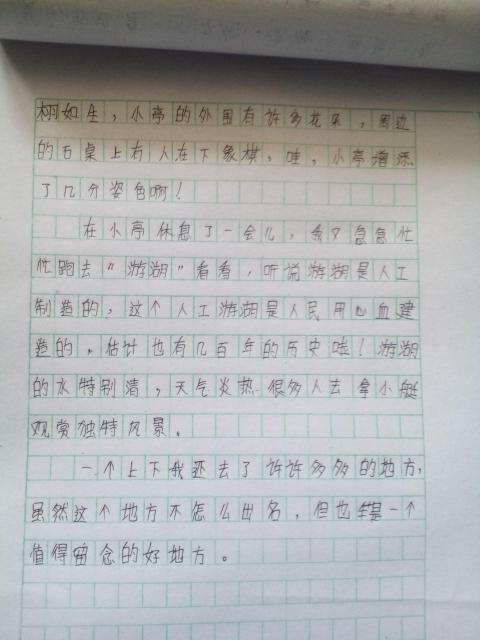 栩如生，小亭的外围有许多花朵，周边
的石桌上有人在下象棋，哇，小亭增添
了几分姿色啊！
在小亭休息了一会儿，我又急急忙
忙跑去“游湖”看看，听说游湖是人工
制造的，这个人工游湖是人民用心血建
造的，估计也有几百年的历史哇！游湖
的水特别清，天气炎热 很多人去拿小艇
观赏独特风景．
一个上下我还去了许许多多的地方，
虽然这个地方不怎么出名，但也是一个
值得留念的好地方。